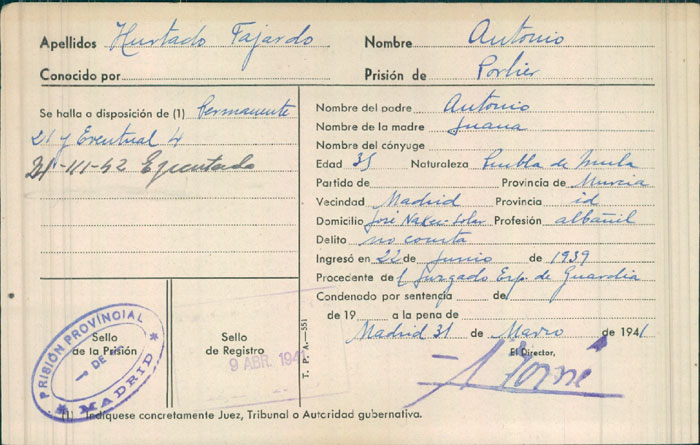 Apellidos Hurtado Fajardo
Nombre Antonio
Conocido por
Prisión de Porlier
Se halla a disposición de (1) Permanente
21 y Eventual 4
21-III-42 Ejecutado
Nombre del padre Antonio
Nombre de la madre Juana
Nombre del cónyuge
Edad 35 Naturaleza Puebla de Mula
Partido de Provincia de Murcia
Vecindad Madrid Provincia id
Domicilio José Naken Profesión albañil
Delito no consta
Ingresó en 22 de Junio de 1939
Procedente de l Juzgado Esp. de Guardia
Condenado por sentencia de
de 19 a la pena de
Madrid 31 de Marzo de 1941
El Director,
Sello
de la Prisión
PRISIÓN PROVINCIAL
DE
MADRID
Sello
de Registro
9 ABR. 1941
T. P. A.—551
(1) Indíquese concretamente Juez, Tribunal o Autoridad gubernativa.